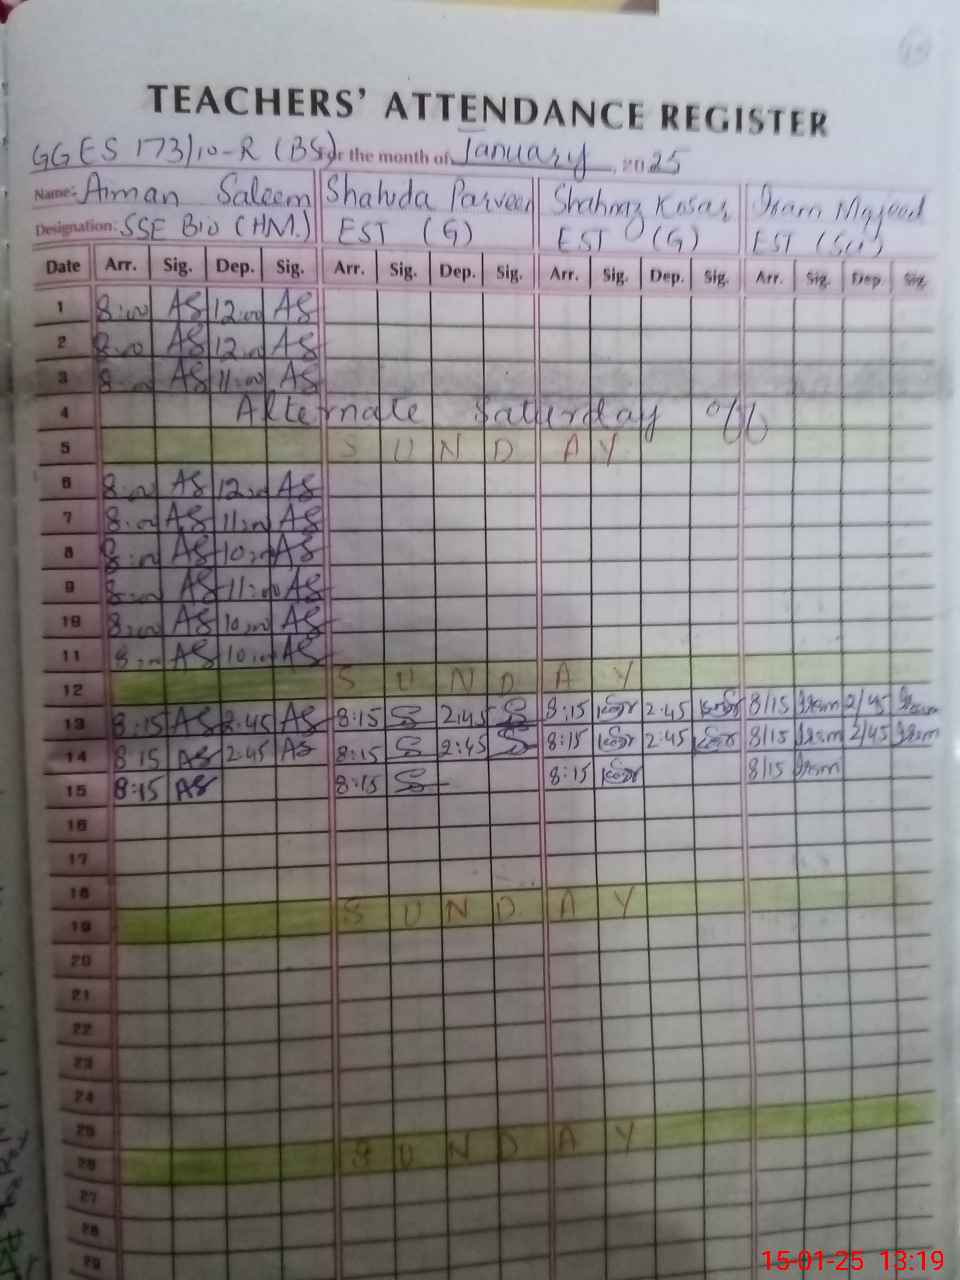 TEACHERS' ATTENDANCE REGISTER
GGES 173/10-R (BS) for the month of January, 2025
Name: Aiman Saleem Shahida Parveen Shahnaz Kosar Iram Majeed
Designation: SSE Bio (HM.) EST (G) EST (G) EST (Sci)
Date Arr. Sig. Dep. Sig. Arr. Sig. Dep. Sig. Arr. Sig. Dep. Sig. Arr. Sig. Dep. Sig.
1 8:00 AS 12:00 AS
2 8:00 AS 12:00 AS
3 8:00 AS 11:00 AS
4 Alternate Saturday off
5 SUNDAY
6 8:00 AS 12:00 AS
7 8:00 AS 11:00 AS
8 8:00 AS 10:00 AS
9 8:00 AS 11:00 AS
10 8:00 AS 10:00 AS
11 8:00 AS 10:00 AS
12 SUNDAY
13 8:15 AS 2:45 AS 8:15 2:45 8:15 2:45 8/15 Iram 2/45 Iram
14 8:15 AS 2:45 AS 8:15 2:45 8:15 2:45 8/15 Iram 2/45 Iram
15 8:15 AS 8:15 8:15 8/15 Iram
16
17
18
19 SUNDAY
20
21
22
23
24
25
26 SUNDAY
27
28
29
15-01-25 13:19